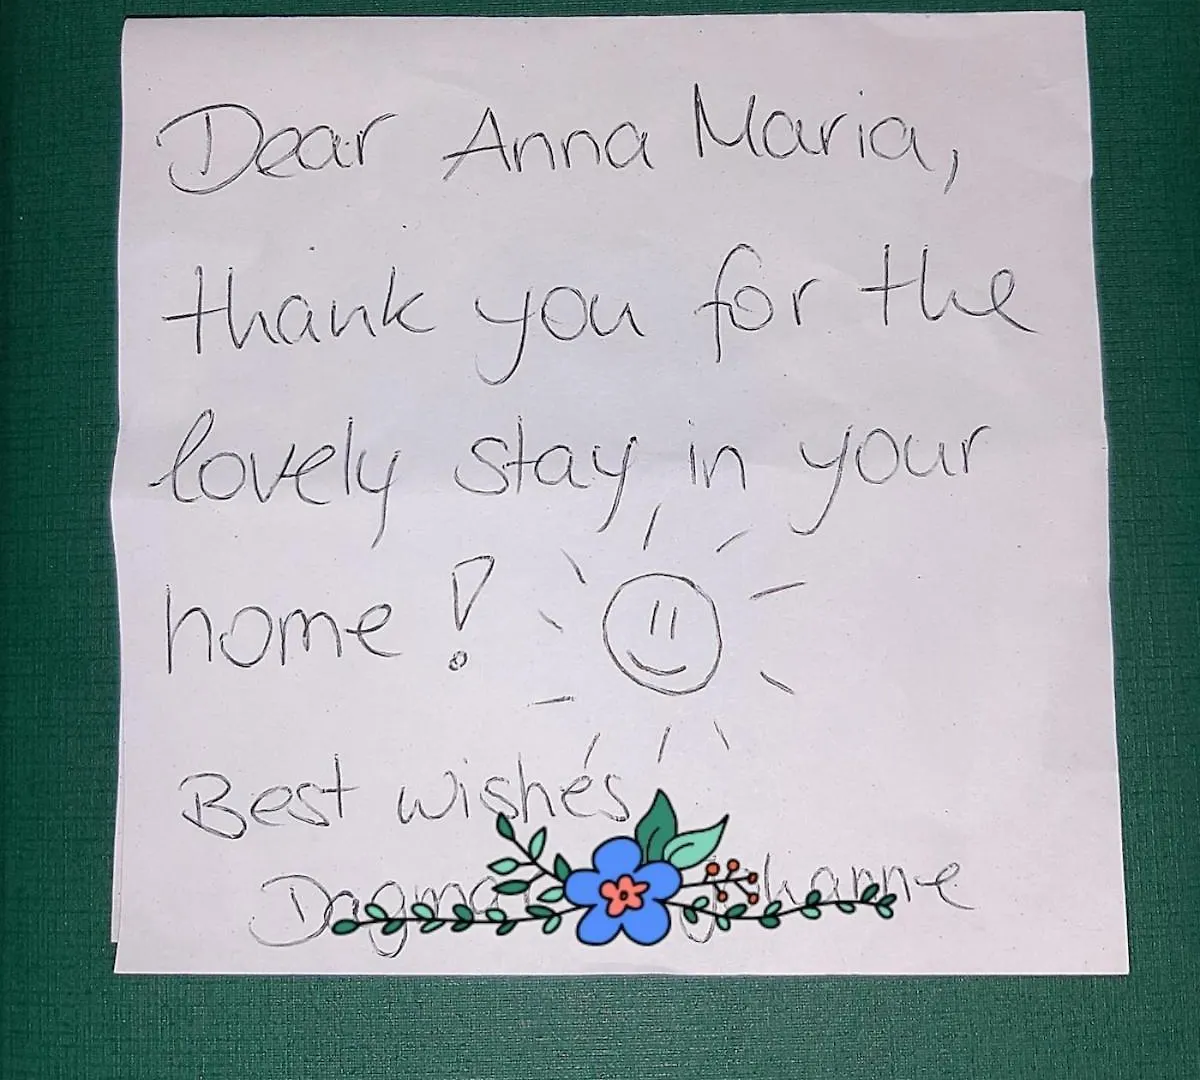 Dear Anna Maria,
thank you for the
lovely stay in your
home!
Best wishes